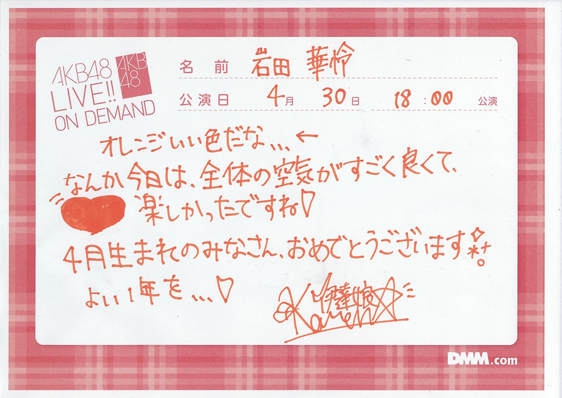 AKB48
LIVE!!
ON DEMAND
AKB
48
名前 岩田 華怜
公演日 4月 30日 18:00 公演
オレンジいい色だな… ←
なんか今日は、全体の空気がすごく良くて、
楽しかったですね♡
4月生まれのみなさん、おめでとうございます
よい1年を…♡
伊達娘
Karen
DMM.com